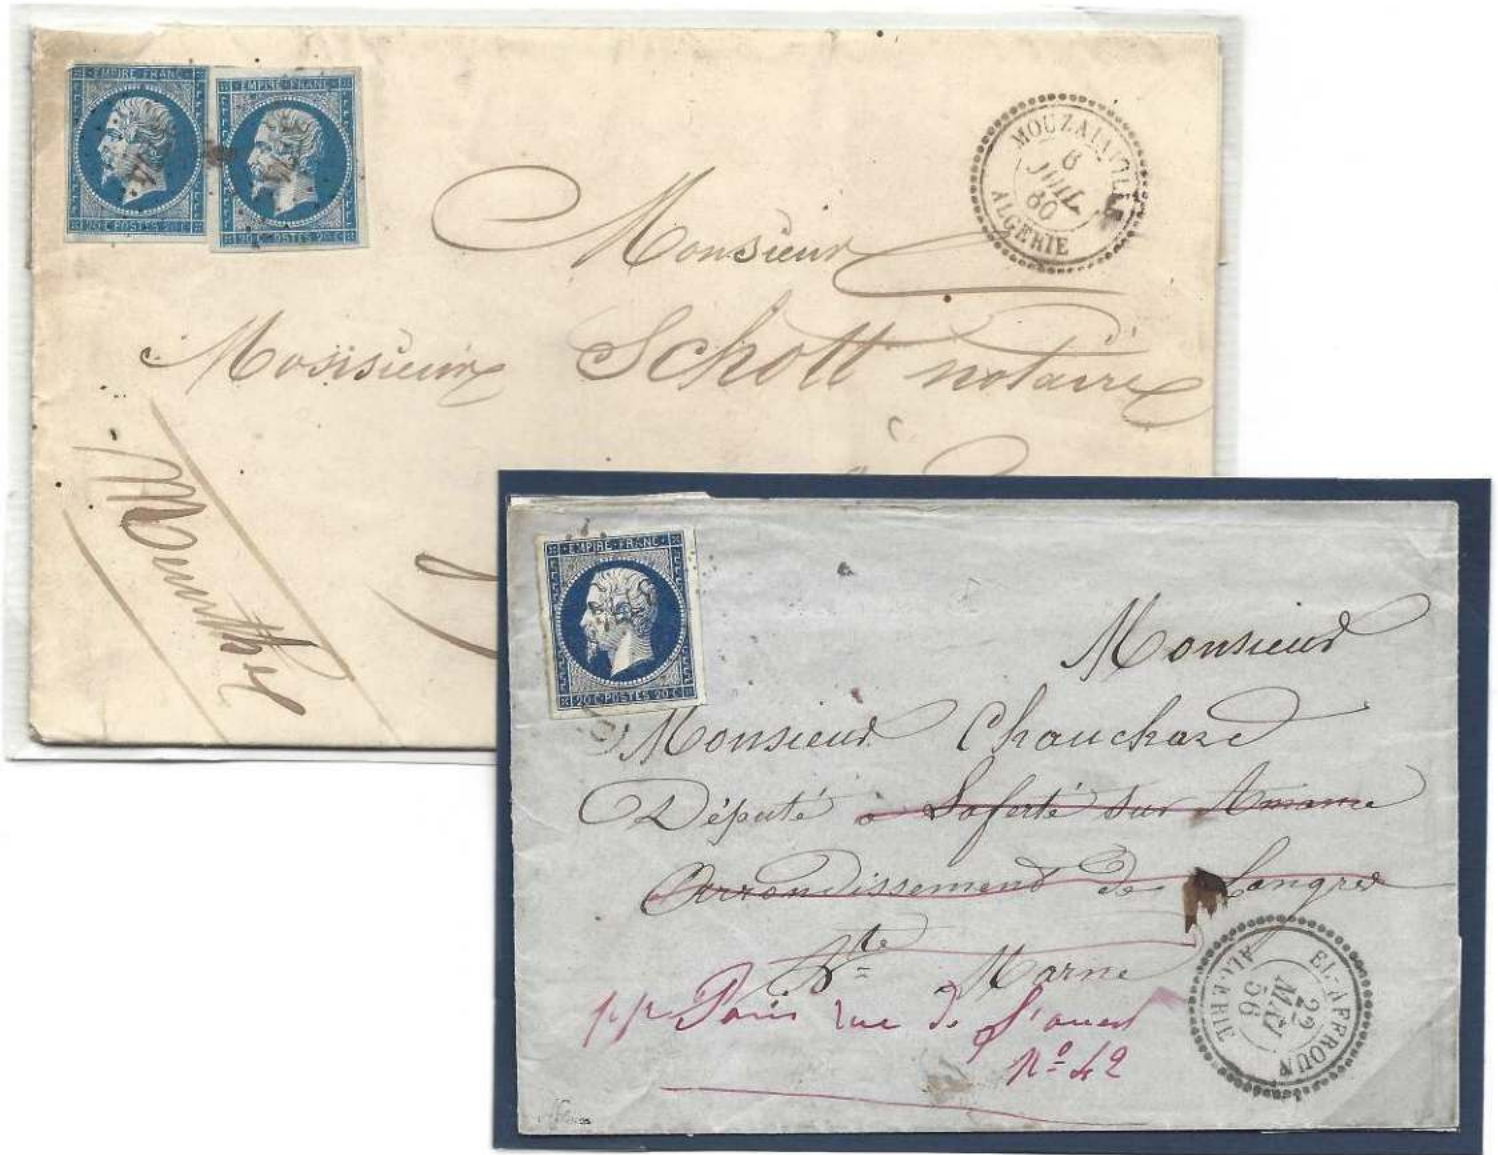 EMPIRE FRANC
20 C POSTES 20 C
EMPIRE FRANC
20 C POSTES 20 C
MOUZAIAVILLE
8
JUIL
60
ALGERIE
Monsieur
Monsieur Schott notaire
à
Meurthe
EMPIRE FRANC
20 C POSTES 20 C
Monsieur
Monsieur Chauchard
Député à Laferté sur Amance
Arrondissement de Langres
Hte Marne
pp Paris rue de l'ouest
No 42
EL-AFFROUN
22
MAI
56
ALGERIE